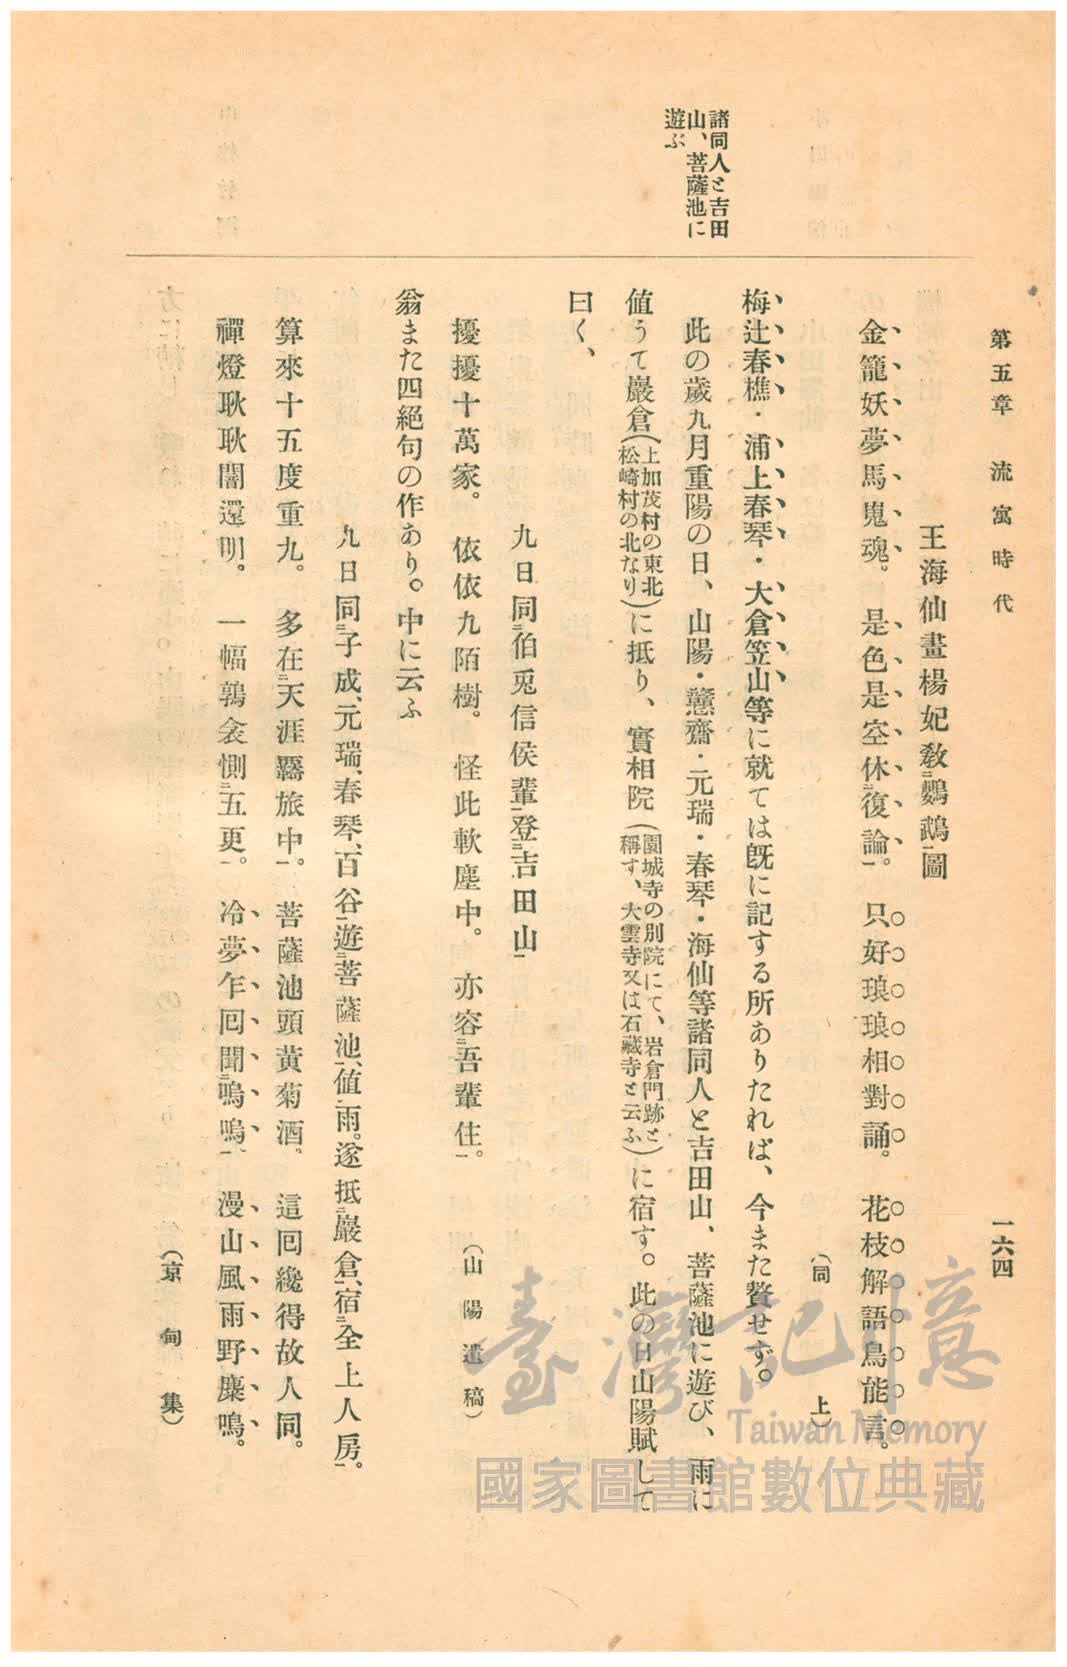 第五章　流寓時代
一六四
諸同人と吉田
山、菩薩池に
遊ぶ
王海仙畫楊妃敎二鸚鵡一圖
金籠妖夢馬嵬魂。　是色是空休二復論一。　只好琅琅相對誦。　花枝解語鳥能言。
（同　上）
梅辻春樵・浦上春琴・大倉笠山等に就ては旣に記する所ありたれば、今また贅せず。
此の歲九月重陽の日、山陽・戇齋・元瑞・春琴・海仙等諸同人と吉田山、菩薩池に遊び、雨に
値うて巖倉（上加茂村の東北松崎村の北なり）に抵り、實相院（園城寺の別院にて、岩倉門跡と稱す、大雲寺又は石藏寺と云ふ）に宿す。此の日山陽賦して
曰く、
九日同二伯兎信侯輩一登二吉田山一
擾擾十萬家。　依依九陌樹。　怪此軟塵中。　亦容二吾輩住一。
（山陽遺稿）
翁また四絕句の作あり。中に云ふ
九日同二子成、元瑞、春琴、百谷一遊二菩薩池一、値レ雨。遂抵二巖倉一、宿二全上人房一。
算來十五度重九。　多在二天涯羈旅中一。　菩薩池頭黃菊酒。　這回纔得故人同。
禪燈耿耿闇還明。　一幅鶉衾惻二五更一。　冷夢乍回聞二嗚嗚一、　漫山風雨野麋鳴。
（京甸集）
臺灣記憶
Taiwan Memory
國家圖書館數位典藏